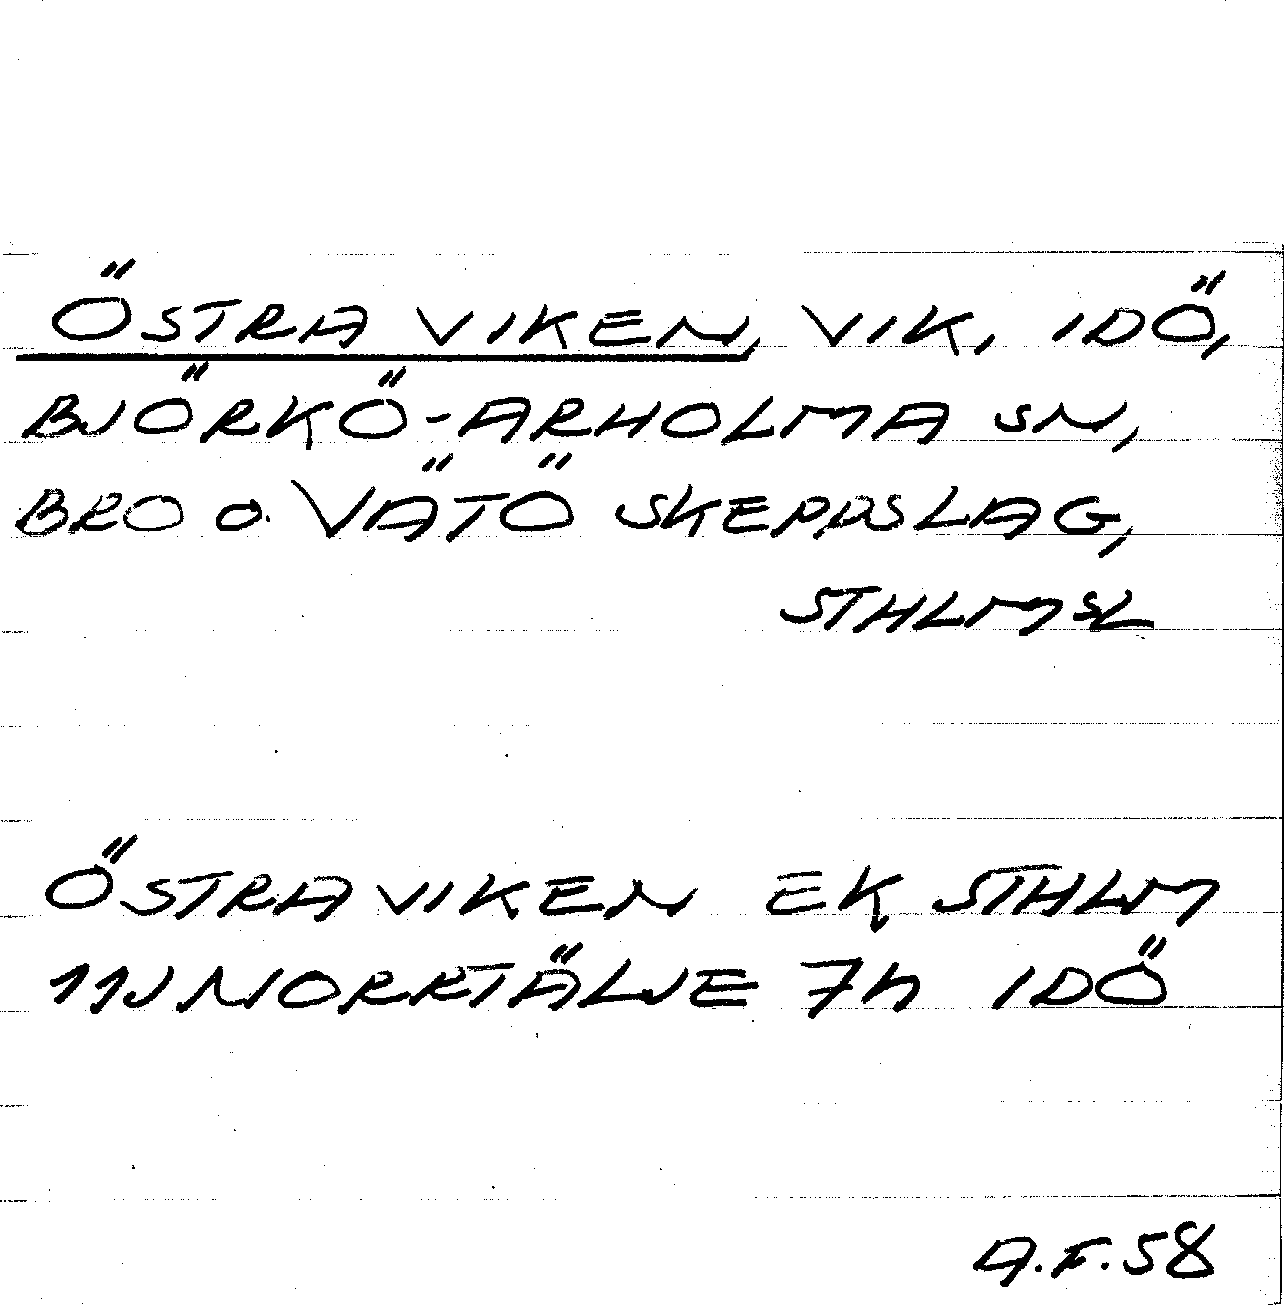 ÖSTRA VIKEN, VIK, IDÖ,
BJÖRKÖ-ARHOLMA SN,
BRO O. VÄTÖ SKEPPSLAG,
STHLMSL
ÖSTRA VIKEN EK STHLM
11J NORRTÄLJE 7h IDÖ
A.F.58